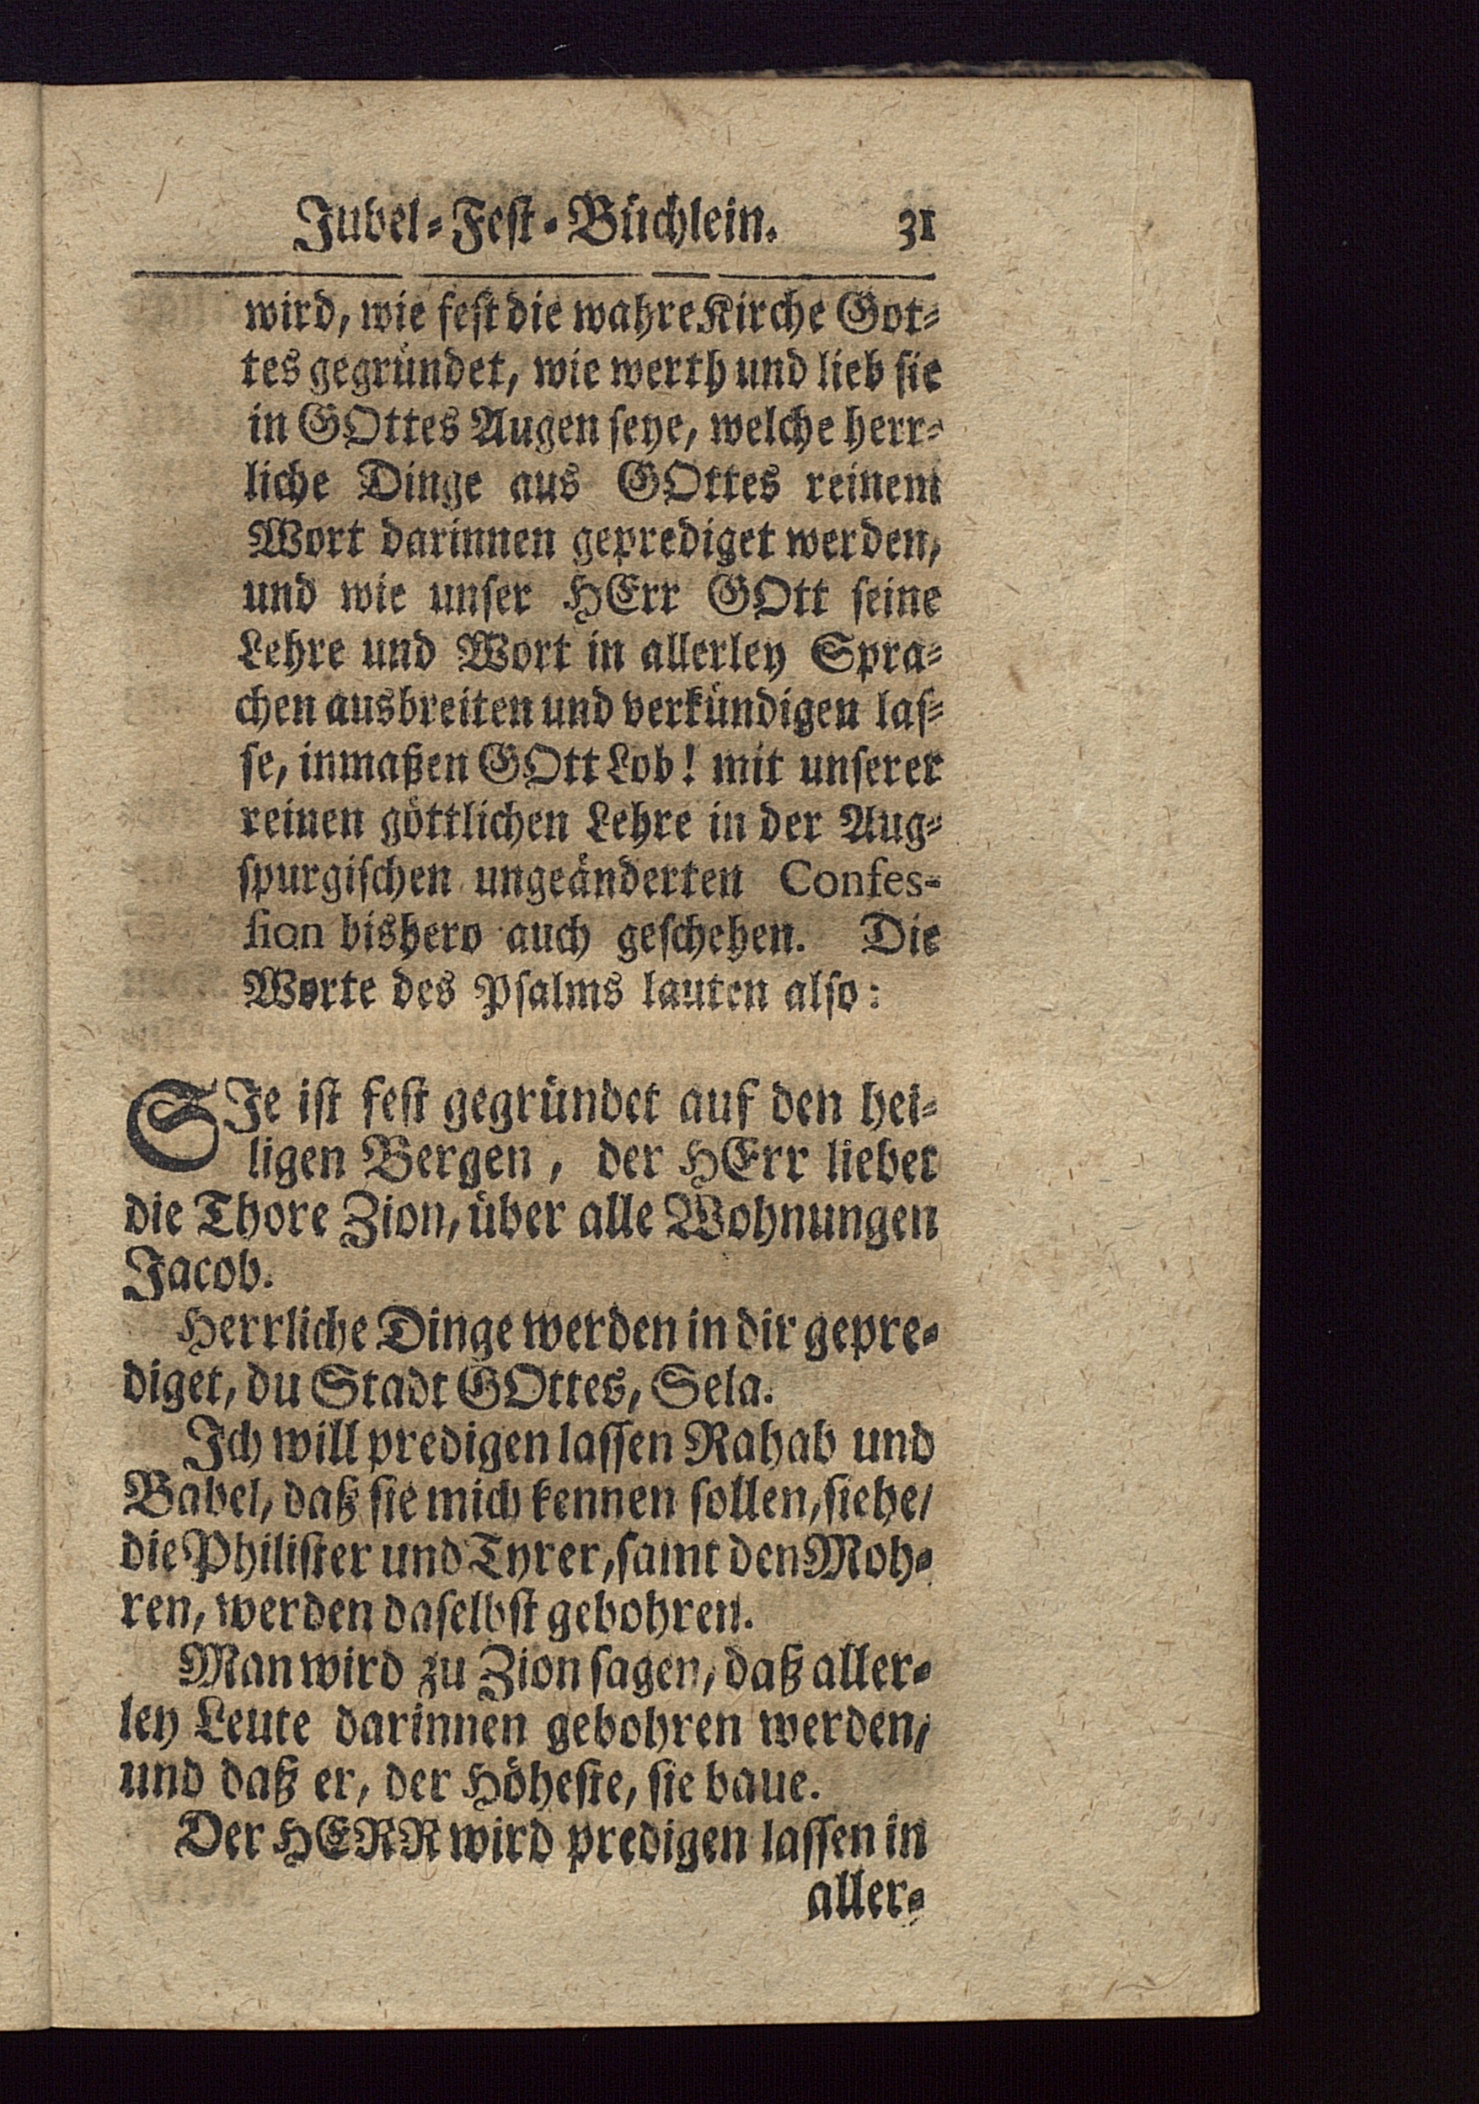 Jubel-Fest-Büchlein. 31
wird, wie fest die wahre Kirche Got-
tes gegründet, wie werth und lieb sie
in GOttes Augen seye, welche herr-
liche Dinge aus GOttes reinem
Wort darinnen geprediget werden,
und wie unser HErr GOtt seine
Lehre und Wort in allerley Spra-
chen ausbreiten und verkündigen las-
se, inmaßen GOtt Lob! mit unserer
reinen göttlichen Lehre in der Aug-
spurgischen ungeänderten Confes-
sion bishero auch geschehen. Die
Worte des Psalms lauten also:
SIe ist fest gegründet auf den hei-
ligen Bergen, der HErr liebet
die Thore Zion, über alle Wohnungen
Jacob.
Herrliche Dinge werden in dir gepre-
diget, du Stadt GOttes, Sela.
Ich will predigen lassen Rahab und
Babel, daß sie mich kennen sollen, siehe/
die Philister und Tyrer, samt den Moh-
ren, werden daselbst gebohren.
Man wird zu Zion sagen, daß aller-
ley Leute darinnen gebohren werden,
und daß er, der Höheste, sie baue.
Der HERR wird predigen lassen in
aller-